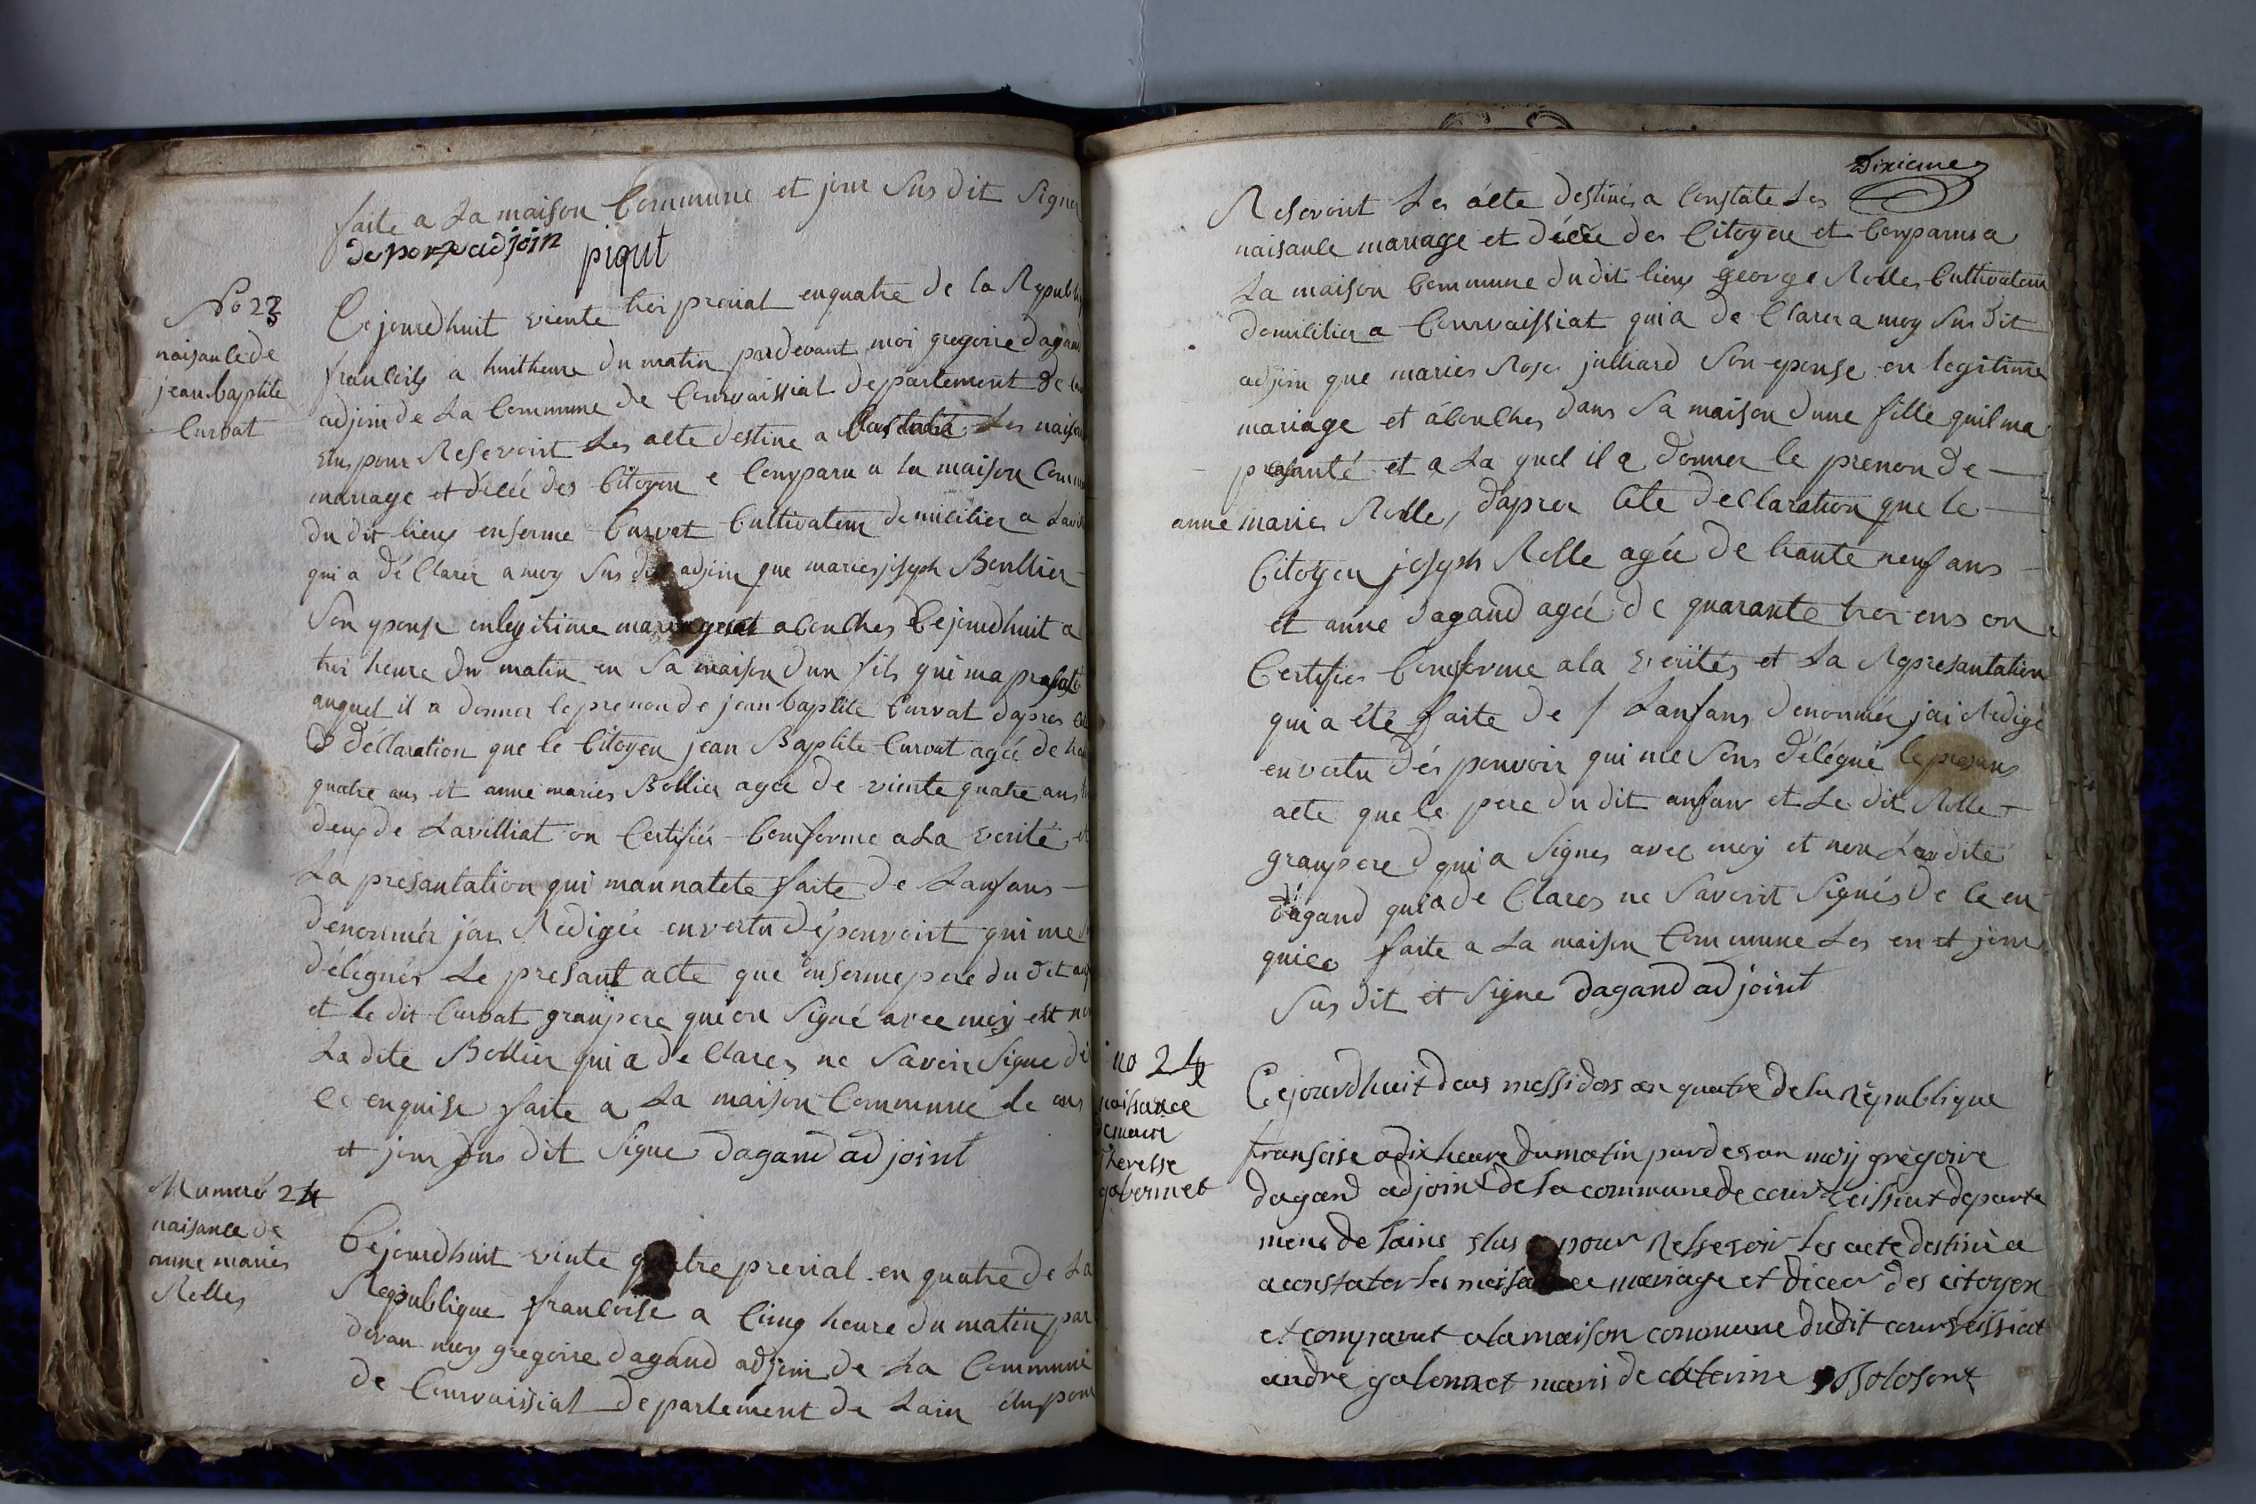 faite a La maison Commune et jour Sus dit Signer
adjoin piqut
No 23
naisance de
jean baptite
Curvat
Cejourdhuit viente troi prerial enquatre de la Republi
francoise a huit heure du matin pardevant moi gregoire dagand
adjoin de La Commune de Courvaissiat departement de
Elus pour Reservoirt Les acte destine a Les naisa
mariage et décée des Citoyen e Comparu a la maison Comm
du dit lieus enserme Curvat Cultivateur domicilier a
qui a déClarer a moy Sus dit adjoin que maries joseph Boullier
Son epouse en legitime mariage et acouches Cejourdhuit a
troi heure du matin en Sa maison dun fils qui ma prasaté
auquel il a donner le prenon de jean baptite Curvat dapres
déClaration que le Citoyen jean Baptite Curvat agée de
quatre ans et anne maries Bollier agée de viente quatre ans
deux de Lavilliat on Certifiés Comforme a La verité et
La presantation qui mannatete faite de Lanfans
denonmér jai Redigée en vertu dépouvoirt qui me
délégués Le presant acte que enserme pere du dit
et le dit Curvat granpere qui on Signé avec moy et non
La dite Bollier qui a deClarer ne Savoir Signe de
Ce enquise faite a La maison Commune Le ans
et jour Sus dit Signe dagand adjoint
Numero 24
naisance de
anne maries
Rolles
Cejourdhuit viente quatre prerial en quatre de La
Republique francoise a Cinq heure du matin par
devan moy gregoire dagand adjoin de La Commune
de Courvaissiat departement de Lain élus pour
Dixieme
Reservoirt Les acte destinés a Constate Les
naisance mariage et décée des Citoyen et Comparus a
La maison Commune du dit lieus George Rolles Cultivateur
domicilier a Courvaissiat qui a deClarer a moy Sus dit
adjoin que maries Rose julliard Son epouse en legitime
mariage et acouches dans Sa maison dune fille quil ma
presanté et a La quel il a donner le prenon de
anne maries Rolle, dapres Cete deClaration que le
Citoyen joseph Rolle agée de trante neuf ans
et anne dagand agée de quarante troi ens on
Certifies Comforme a la verités et La Representation
qui a été faite de Lanfans denonmée jai Redigé
en vertu dés pouvoir qui me Sons délégué le presans
acte que le pere du dit anfans et Le dit Rolle
granpere qui a Signes avec moy et non Laudite
dagand qui a deClares ne Savoirt Signés de Ce en
quice faite a La maison Commune Les en et jour
Sus dit et Signe dagand adjoint
no 24
naisance
de marie
theresse
galermet
Cejourdhuit deus messidors an quatre de la Republique
fransoise a dix heure du matin par devan moij gregoire
dagand adjoint de la commune de courveissiat departe
mens de lains elus pour Resevoir les acte destiné a
a constater les naisance mariage et dicer des citoyen
et comparut a la maison commune du dit courveissiat
andre galermet maris de caterine